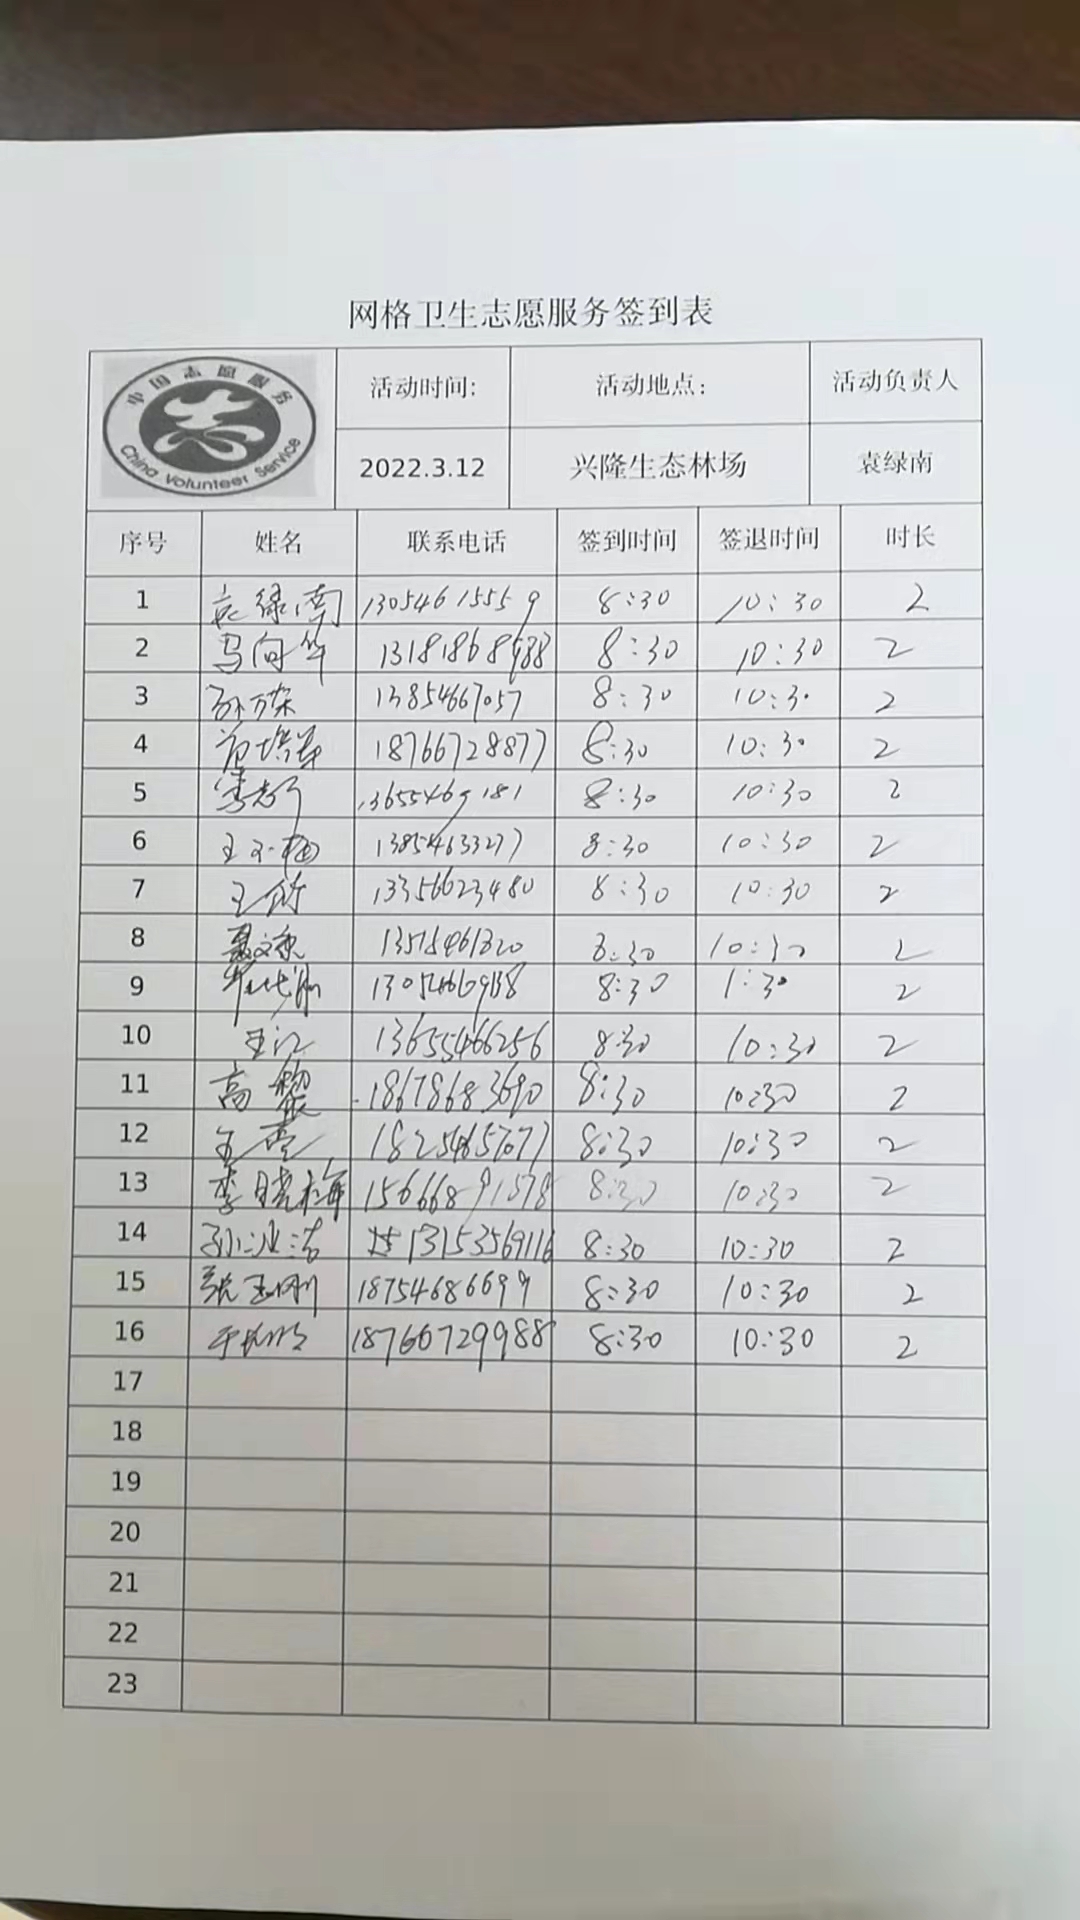 网格卫生志愿服务签到表
中国志愿服务
China Volunteer Service
活动时间: 活动地点: 活动负责人
2022.3.12 兴隆生态林场 袁绿南
序号 姓名 联系电话 签到时间 签退时间 时长
1 袁绿南 13054615559 8:30 10:30 2
2 马向华 13181868988 8:30 10:30 2
3 孙万荣 13854667057 8:30 10:30 2
4 18766728877 8:30 10:30 2
5 13655469181 8:30 10:30 2
6 13854633277 8:30 10:30 2
7 13356623480 8:30 10:30 2
8 8:30 10:30 2
9 8:30 1:30 2
10 王江 13655466256 8:30 10:30 2
11 高 18678683690 8:30 10:30 2
12 18254657077 8:30 10:30 2
13 李晓梅 15666891578 8:30 10:30 2
14 孙冰洁 13153569116 8:30 10:30 2
15 18754686699 8:30 10:30 2
16 18766729988 8:30 10:30 2
17
18
19
20
21
22
23